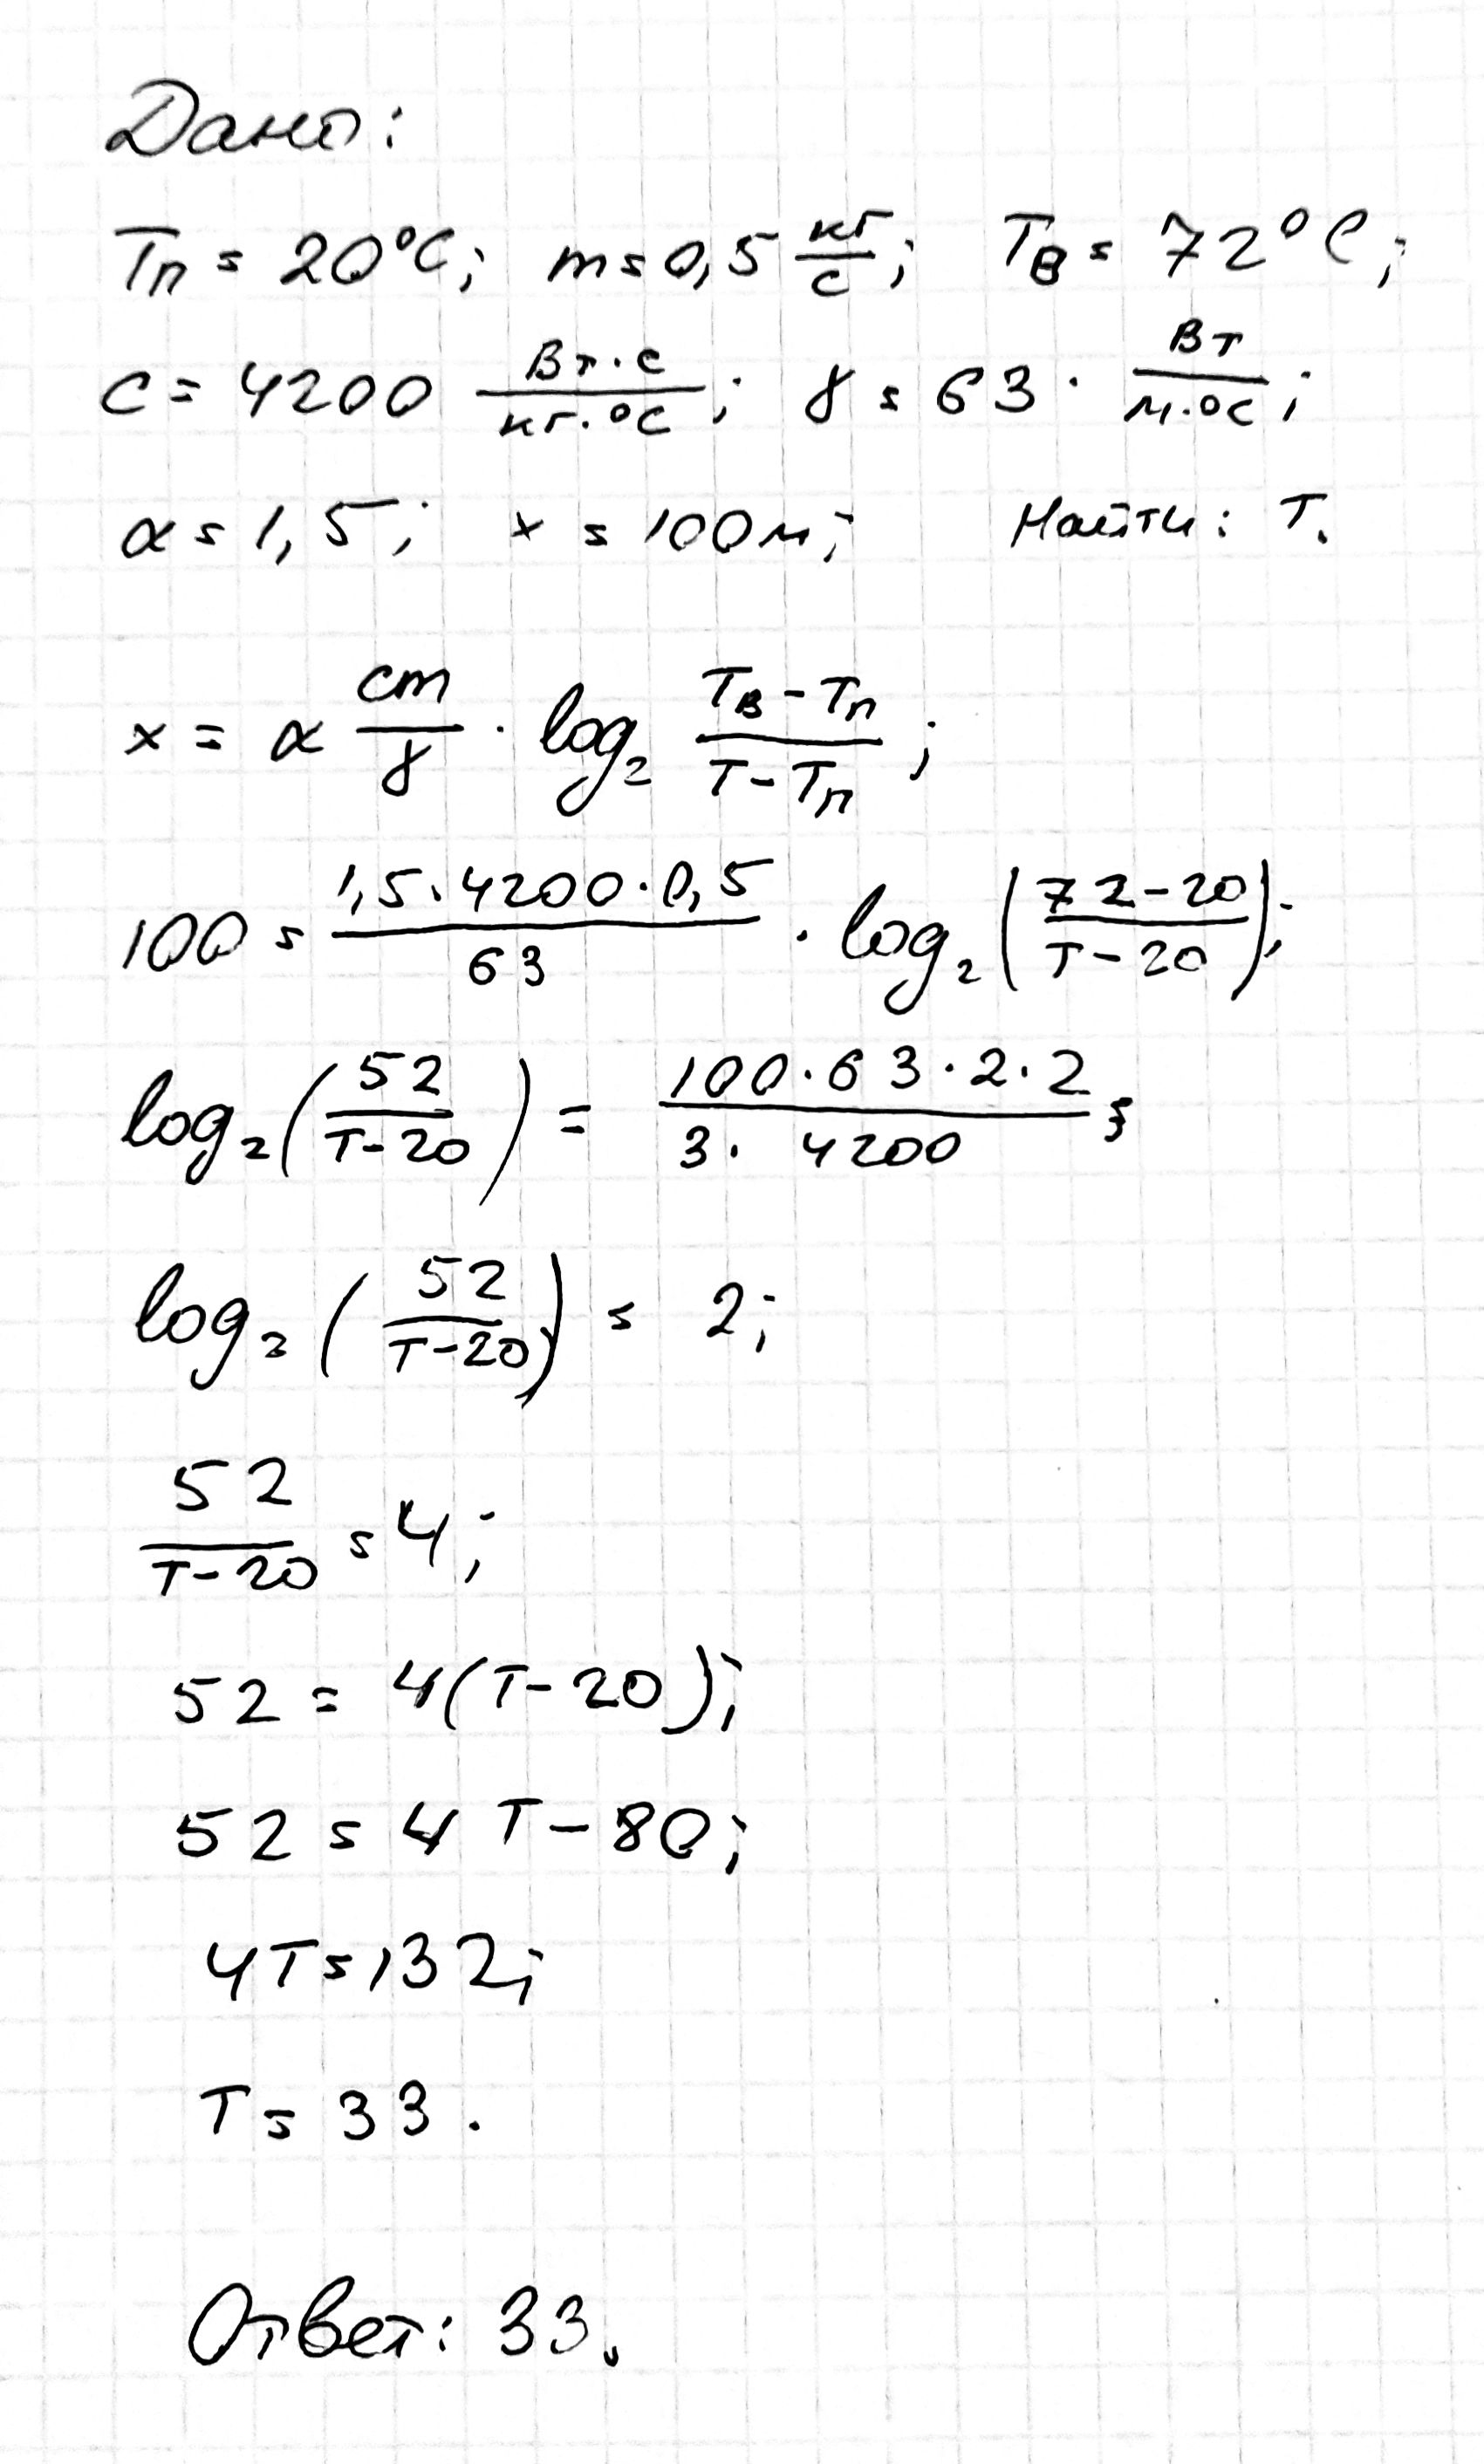 Дано:
Tп = 20°C; m = 0,5 кг/с; Tв = 72°C;
c = 4200 Вт·с/кг·°C; γ = 63 · Вт/м·°C;
α = 1,5; x = 100м; Найти: T.
x = α cm/γ · log₂ (Tв - Tп)/(T - Tп);
100 = (1,5·4200·0,5)/63 · log₂((72-20)/(T-20));
log₂(52/(T-20)) = (100·63·2·2)/(3·4200);
log₂(52/(T-20)) = 2;
52/(T-20) = 4;
52 = 4(T-20);
52 = 4T - 80;
4T = 132;
T = 33.
Ответ: 33.